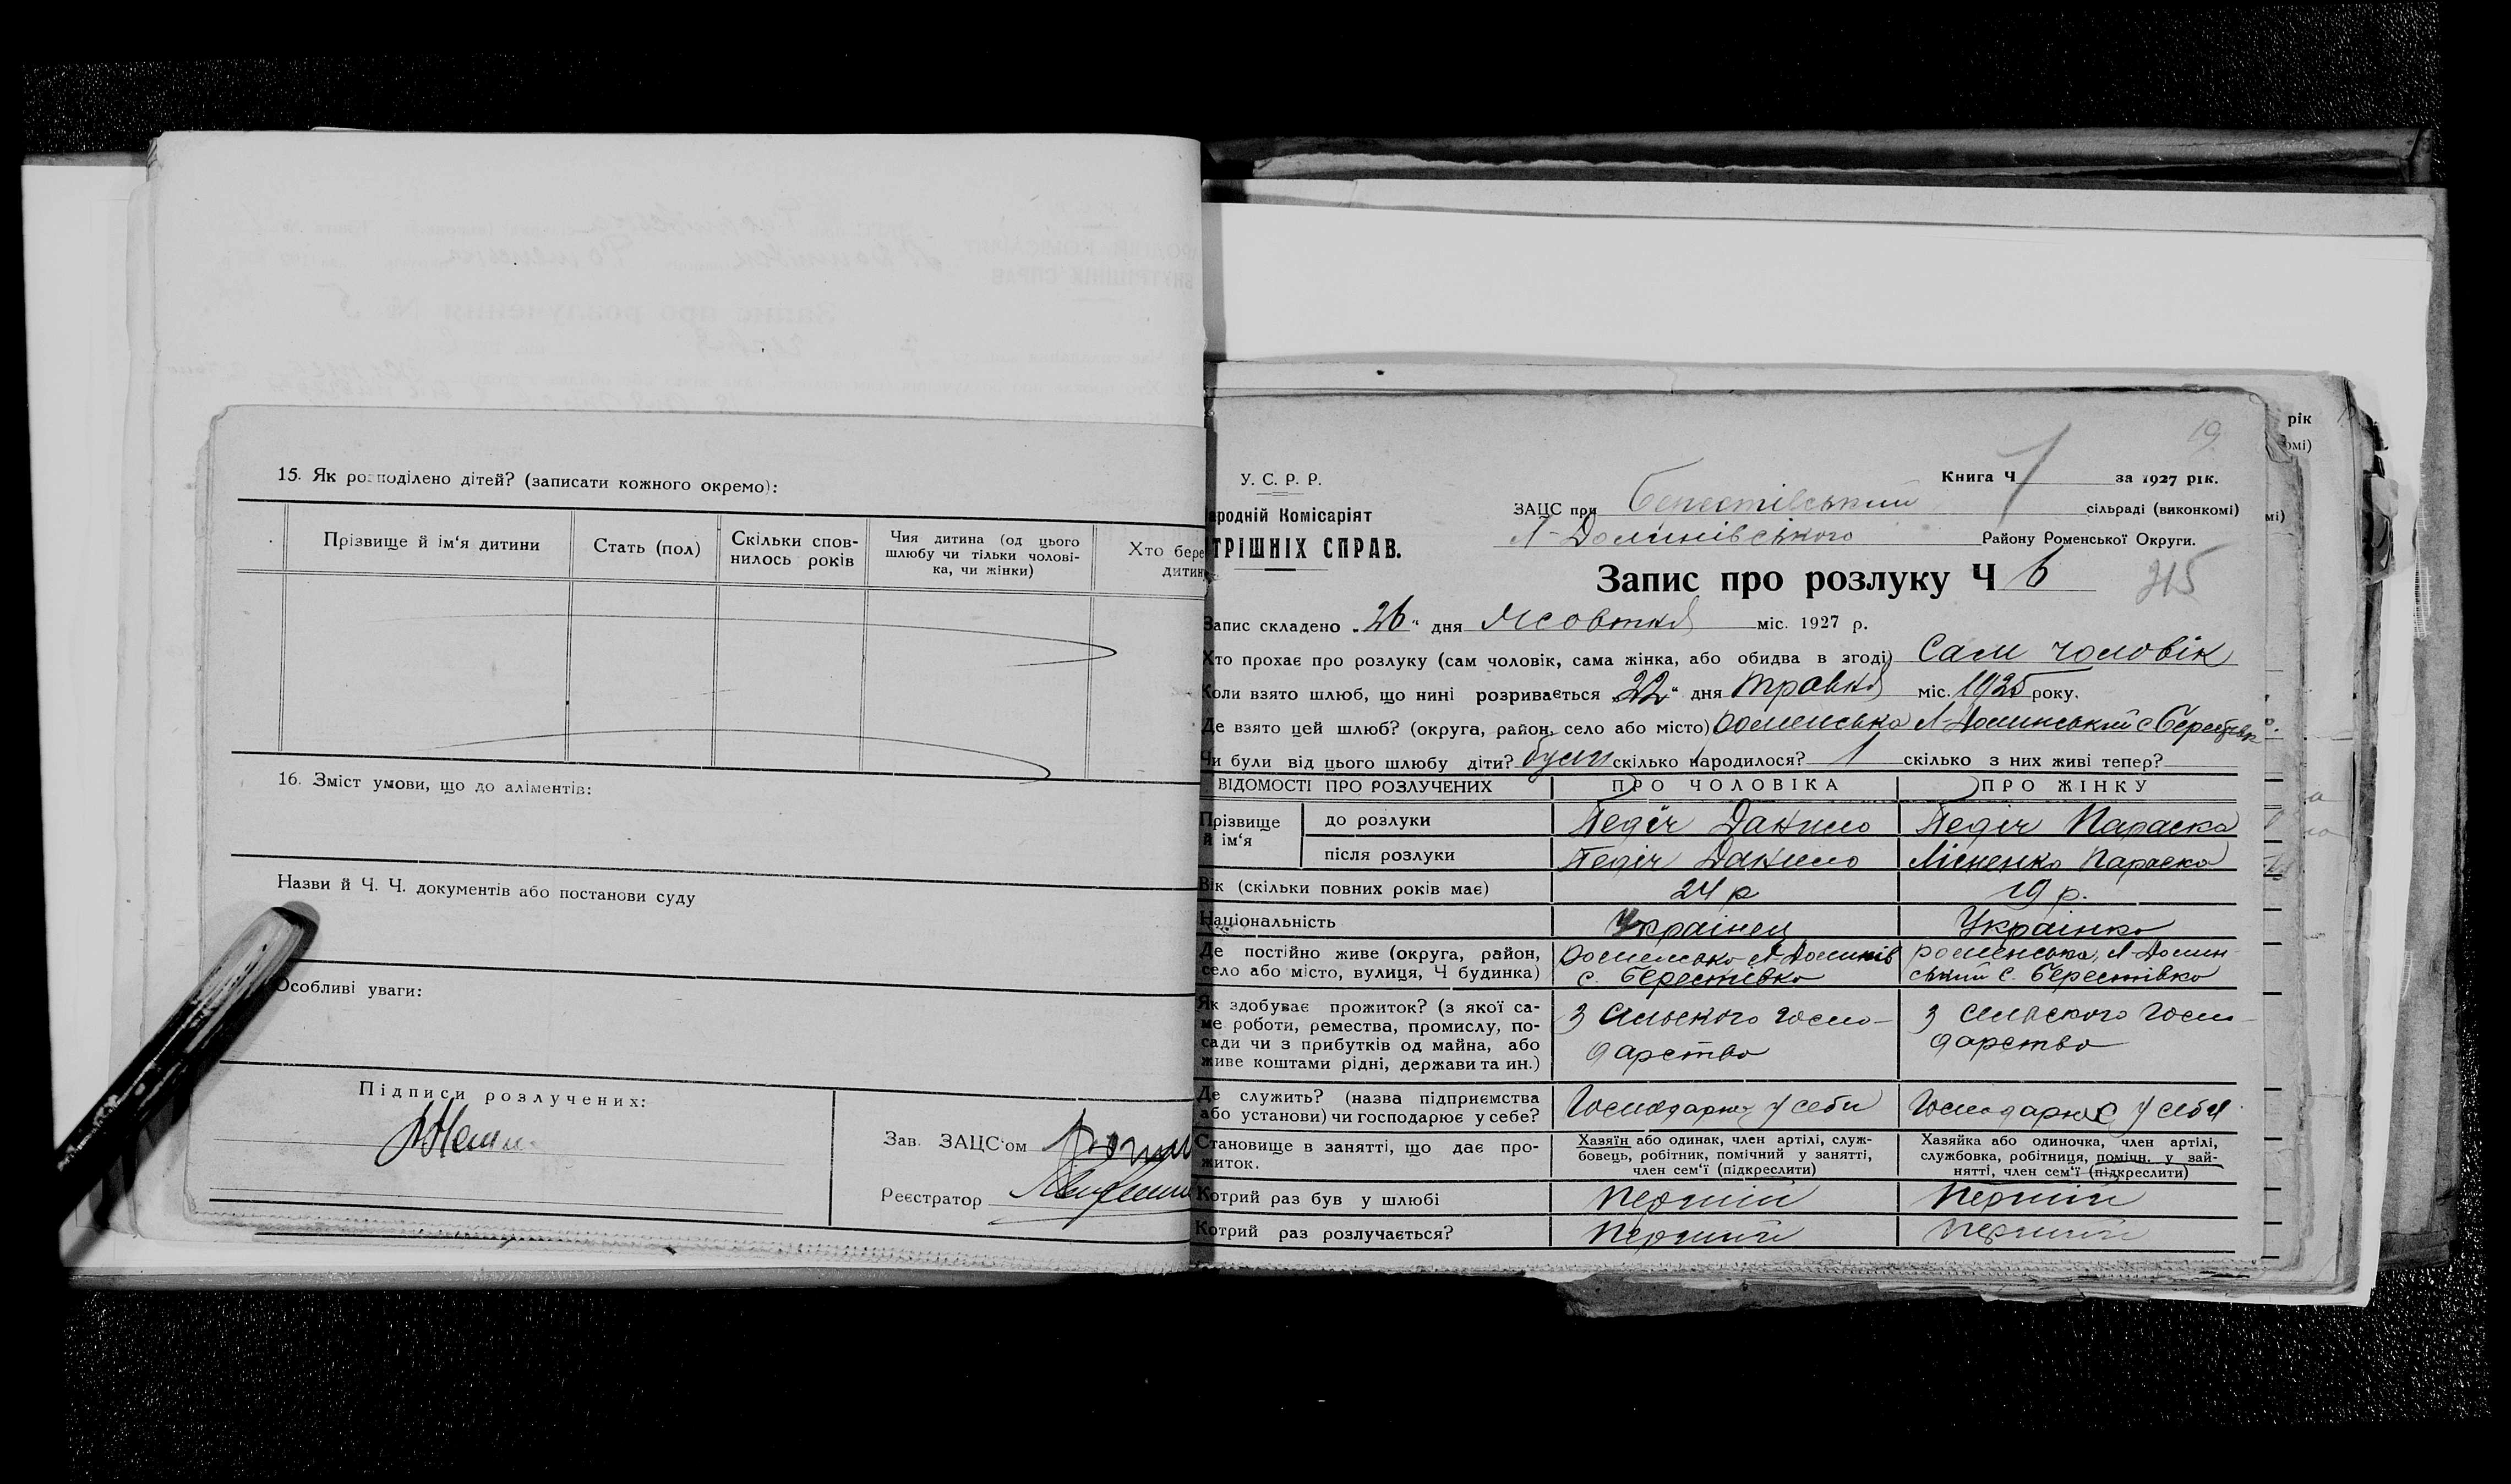 15. Як розподілено дітей? (записати кожного окремо):
Прізвище й ім'я дитини
Стать (пол)
Скільки спов-
нилось років
Чия дитина (од цього
шлюбу чи тільки чолові-
ка, чи жінки)
Хто бере
дитин
16. Зміст умови, що до аліментів:
Назви й Ч. Ч. документів або постанови суду
Особливі уваги:
Підписи розлучених:
Зав. ЗАЦС'ом
Реєстратор
рік
омі)
мі)
19
У. С. Р. Р.
Книга Ч 1 за 1927 рік.
ародній Комісаріят
ЗАЦС при Берестівський сільраді (виконкомі)
ТРІШНІХ СПРАВ.
Л-Долинівського Району Роменської Округи.
Запис про розлуку Ч 6
215
Запис складено „26" дня Жовтня міс. 1927 р.
Хто прохає про розлуку (сам чоловік, сама жінка, або обидва в згоді) Сам чоловік
Коли взято шлюб, що нині розривається „22" дня травня міс. 1925 року.
Де взято цей шлюб? (округа, район, село або місто) Роменська Л-Долинський с Берестівк
Чи були від цього шлюбу діти? були скілько народилося? 1 скілько з них живі тепер?
ВІДОМОСТІ ПРО РОЗЛУЧЕНИХ
ПРО ЧОЛОВІКА
ПРО ЖІНКУ
Прізвище
й ім'я
до розлуки
Педіч Данило
Педіч Параска
після розлуки
Педіч Данило
Лісненко Параска
Вік (скільки повних років має)
24 р
19 р.
Національність
Українец
Українка
Де постійно живе (округа, район,
село або місто, вулиця, Ч будинка)
Роменська Л Долинів
с. Берестівка
роменська, Л-Долин-
ський с. Берестівка
Як здобуває прожиток? (з якої са-
ме роботи, ремества, промислу, по-
сади чи з прибутків од майна, або
живе коштами рідні, держави та ин.)
З Сільского госпо-
дарства
З сільского Госпо-
дарства
Де служить? (назва підприємства
або установи) чи господарює у себе?
Господарює у себи
Господарює у себя
Становище в занятті, що дає про-
житок.
Хазяїн або одинак, член артілі, служ-
бовець, робітник, помічний у занятті,
член сем'ї (підкреслити)
Хазяйка або одиночка, член артілі,
службовка, робітниця, помічн. у зай-
нятті, член сем'ї (підкреслити)
Котрий раз був у шлюбі
першій
першій
Котрий раз розлучається?
перший
перший